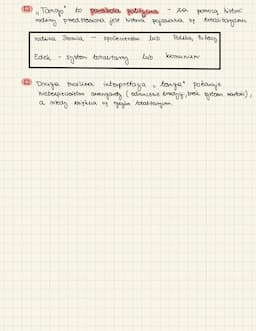 „Tango" to parabola polityczna - za pomocą historii
rodziny przedstawiona jest historia pojawiania się totalitaryzmu
rodzina Stomila - społeczeństwo lub Polska, Polacy
Edek - system totalitarny lub komunizm
Druga możliwa interpretacja „Tanga" pokazuje
niebezpieczeństwo awangardy (odrzucenie tradycji, brak system wartości),
a wtedy zwycięża się rządzi totalitaryzm.